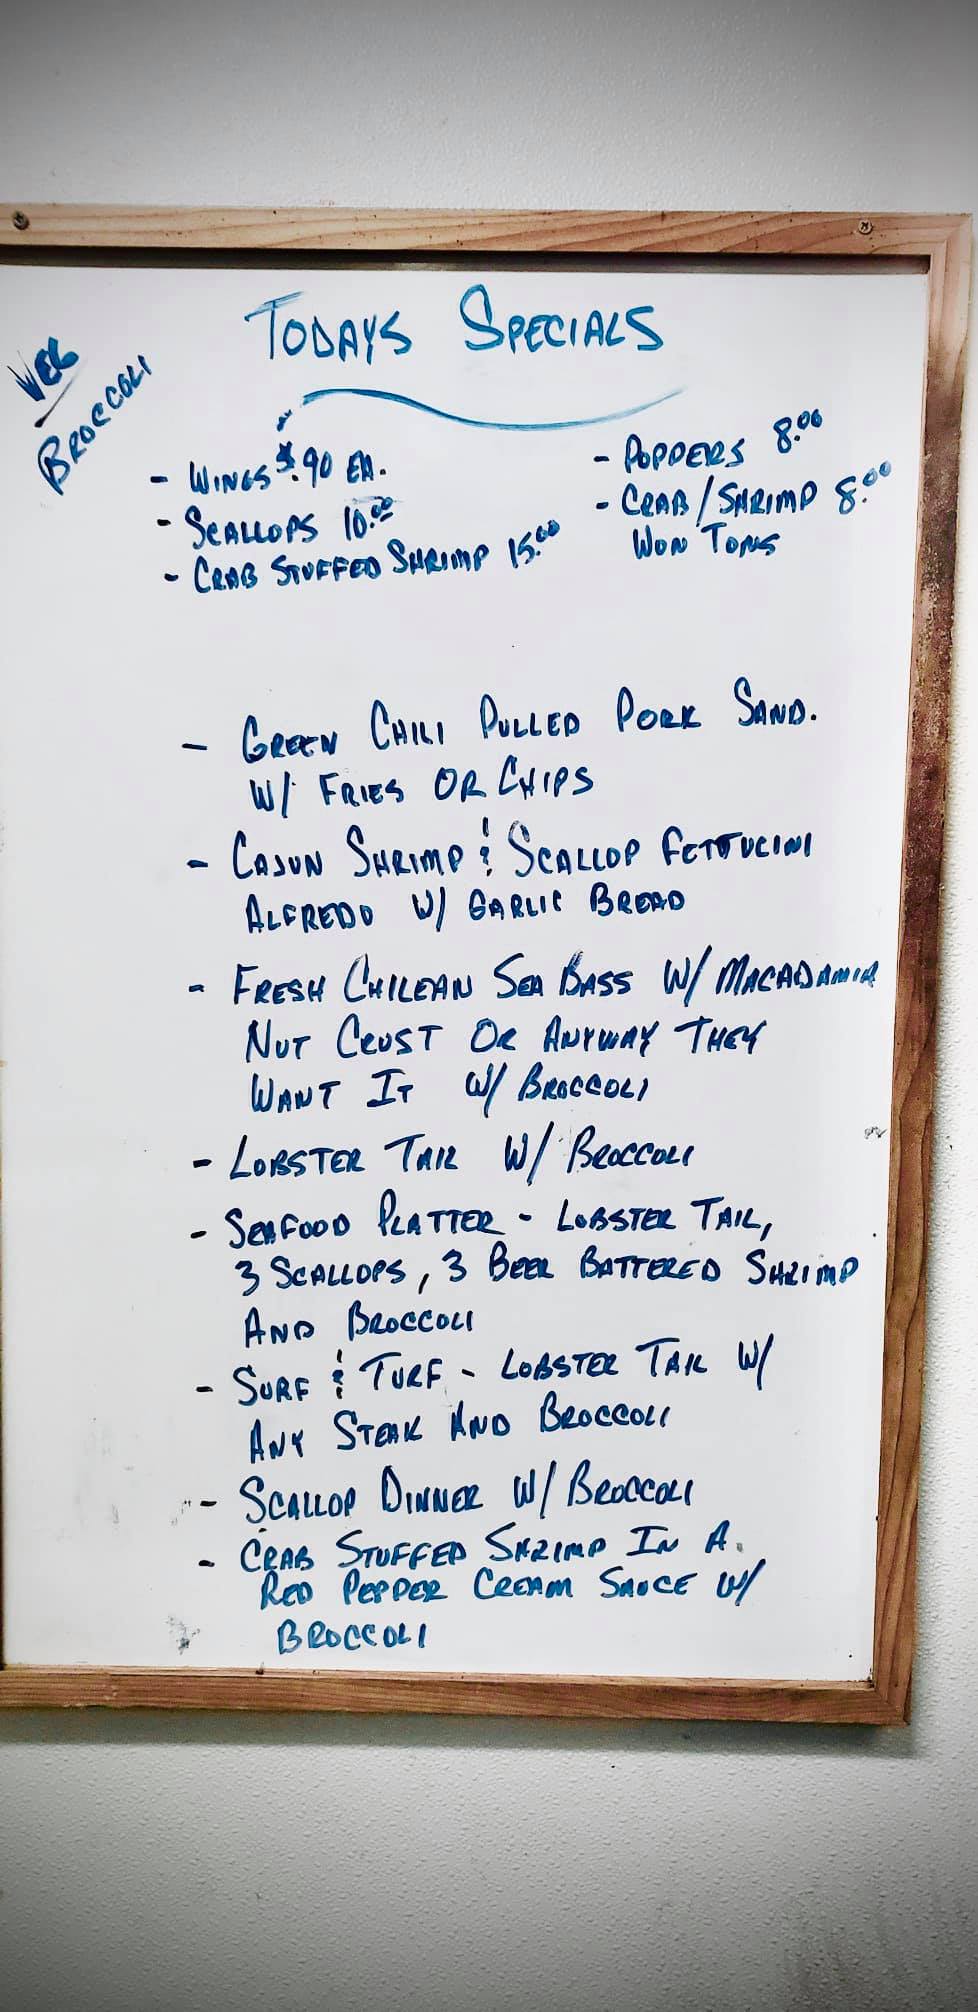 TODAYS SPECIALS
VEG
BROCCOLI
- WINGS $.90 EA.
- SCALLOPS 10.00
- CRAB STUFFED SHRIMP 15.00
- POPPERS 8.00
- CRAB/SHRIMP 8.00
WON TONS
- GREEN CHILI PULLED PORK SAND.
W/ FRIES OR CHIPS
- CAJUN SHRIMP & SCALLOP FETTUCINI
ALFREDO W/ GARLIC BREAD
- FRESH CHILEAN SEA BASS W/ MACADAMIA
NUT CRUST OR ANYWAY THEY
WANT IT W/ BROCCOLI
- LOBSTER TAIL W/ BROCCOLI
- SEAFOOD PLATTER - LOBSTER TAIL,
3 SCALLOPS, 3 BEER BATTERED SHRIMP
AND BROCCOLI
- SURF & TURF - LOBSTER TAIL W/
ANY STEAK AND BROCCOLI
- SCALLOP DINNER W/ BROCCOLI
- CRAB STUFFED SHRIMP IN A
RED PEPPER CREAM SAUCE W/
BROCCOLI